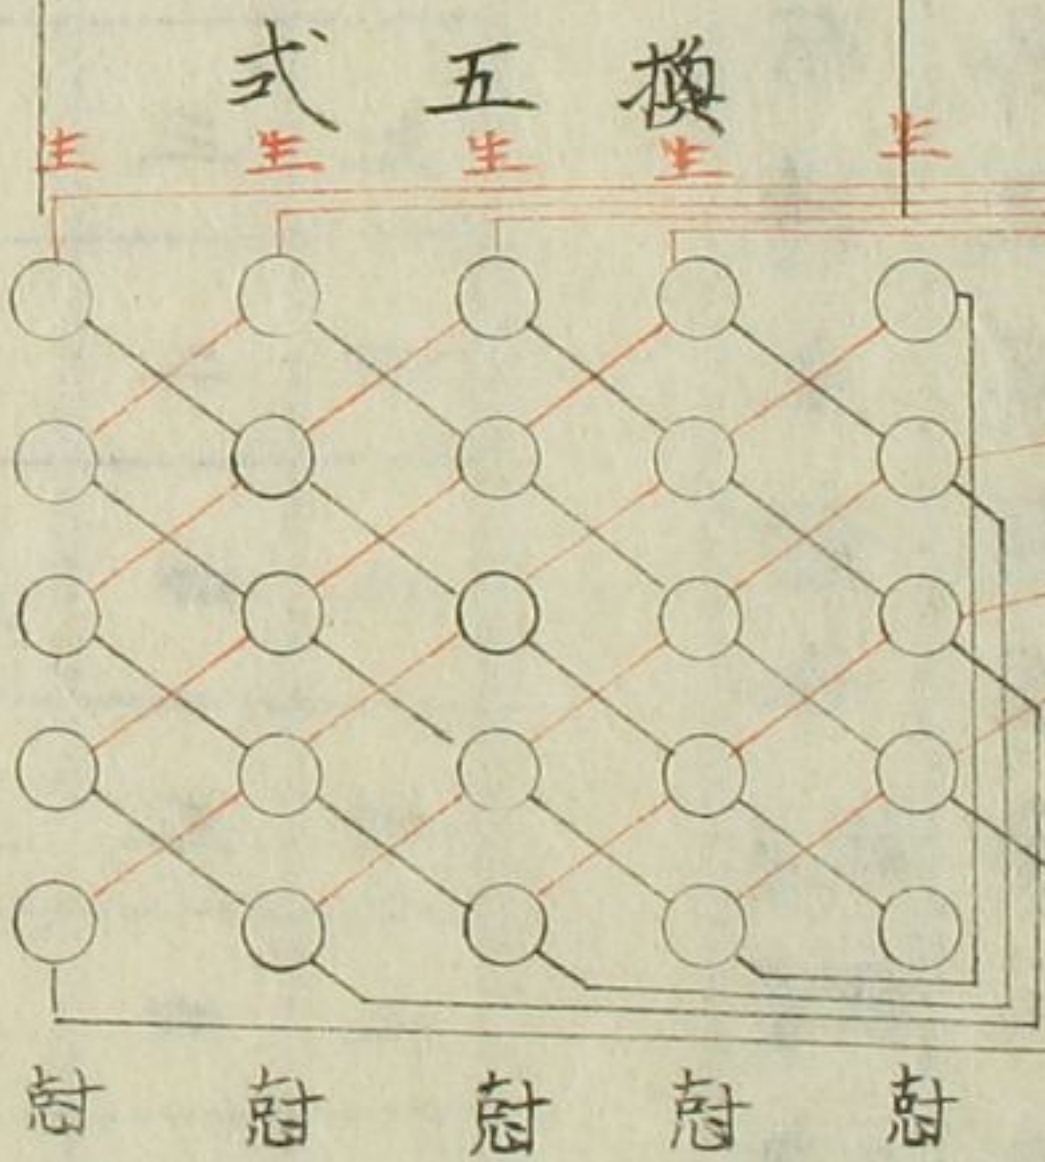 換五式
生 生 生 生 生
尅 尅 尅 尅 尅